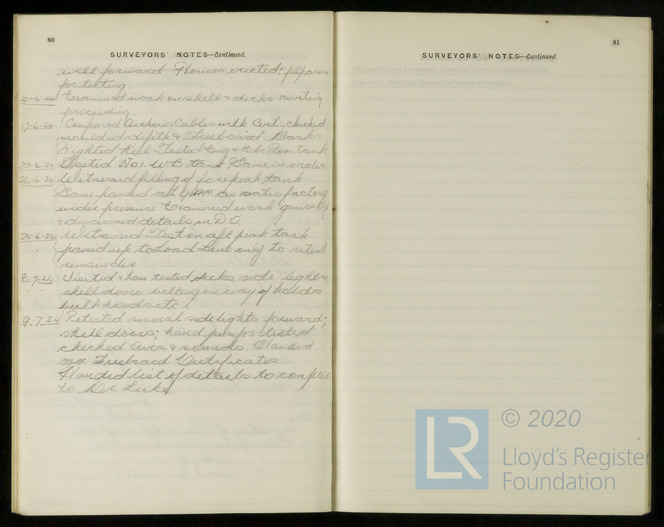 80
SURVEYORS' NOTES—Continued.
well forward Frames erected & preparing
for testing.
10-6-26 Examined work on shell & decks riveting
proceeding.
17-6-26 Compared Anchors Cables with Cert. checked
moulded depth & Freeboard Marks
Sighted Keel Tested Eng & Blr Room tank
23-6-26 Tested No1 WB tank & same in order
Witnessed filling of forepeak tank
Same passed at as satisfactory
under pressure Examined work generally
& discussed details in D.O.
Witnessed Test on aft peak tank
passed up to Load Line only to retest
remainder
Visited & hose tested decks side lights
shell doors in way of holds
bulkheads etc.
9-7-26 Retested several sidelights forward;
shell doors; hand pumps tested
checked & sounds. Handed
over Freeboard Certificates.
Handed list of details to complete
to Mr
81
SURVEYORS' NOTES—Continued.
LR
© 2020
Lloyd's Register
Foundation